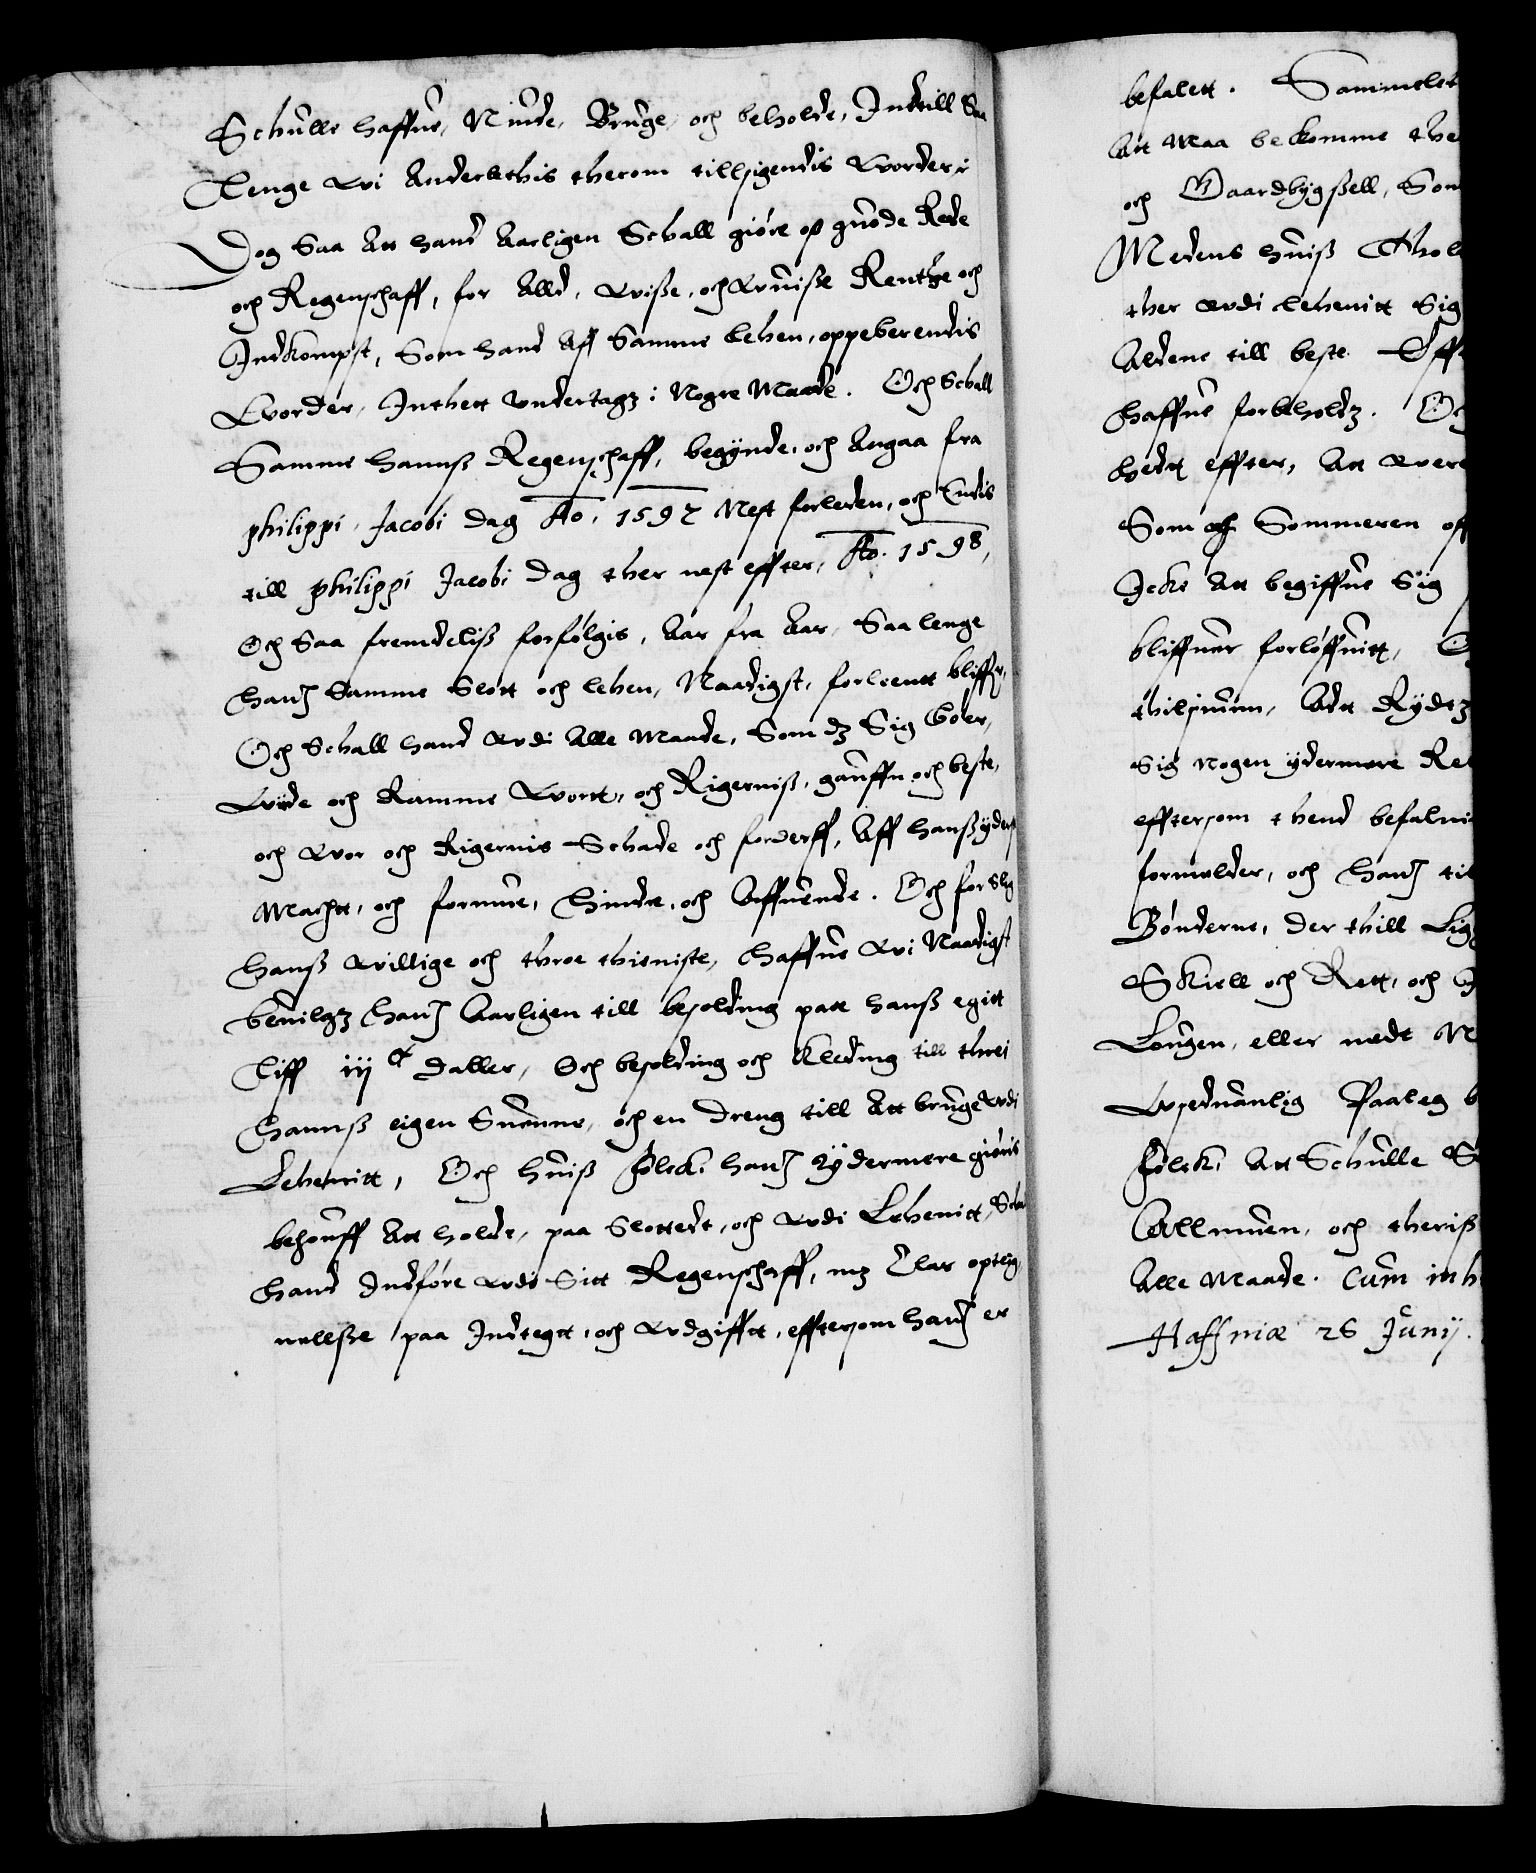 Schulle haffue, Niude, Bruge, och beholde, Indtill Saa
Lenge wi Anderlethis therom tillsigendis Worder:
Dog Saa Att hand Aarligen Schall giøre os guode Rede
och Regenschaff, for Alld, Wisse, och Wuisse Rentthe och
Indkompst, Som hand Aff Samme Lehen, oppeberendis
Worder, Inthett Undertagz i Nogre Maade. Och Schall
Samme hannß Regenschaff, begynde, och Angaa fra
philippi Jacobi dag Ao. 1597 Nest forleden, och Endis
till philippi Jacobi dag ther nest effter, Ao. 1598,
Och Saa fremdeliß forfølgis, Aar fra Aar, Saa lenge
hand Samme Slott och lehen, Naadigst, forlentt bliffr,
Och Schall hand Udi Alle Maade, Som dz Sig bøer,
Wide och Ramme Wortt, och Rigerniß, gauffn och beste,
och Wor och Rigernis Schade och forderff, Aff hanß yderst
Machtt, och formue, hindre, och Affuende. Och for slig
hanß Willige och throe thieniste, haffue Wi Naadigst
beuilgz hand Aarligen till besolding paa hanß egitt
Liff iij c daller, Och besolding och Kleding till threi
hannß eigen Suenne, och en dreng till Att bruge Udi
Lehenitt, Och huiß folck, hand Ydermere giøris
behouff Att holde, paa Slottedt, och Udi Lehenitt, Schall
hand Indføre Udi Sitt Regenschaff, mz Klar opteg-
nellsse paa Indtegt, och Udgifft, efftersom hand er
befalett. Sammeled
Att Maa bekomme the
och Gaardbygßell, Som
Medens huiß Thol
ther Udi lehenitt Sig
Adene till beste
haffue forbeholdz. Og
hedt effter, Att Were
Som och Sommeren
Icke Att begiffue Sig
bliffuer forløffuitt,
thilsinnn, Adt Rydtz
Sig Nogen ydermere
efftersom thend befalni
formelder, och hand til
Bønderne, der thill Lig
Skiell och Rett, och
Lougen, eller medt
Usedwanlig Paaleg
folck, Att Schulle
Allmuen, och theriß
Alle Maade. Cum inh
Haffniæ 26 Junij.